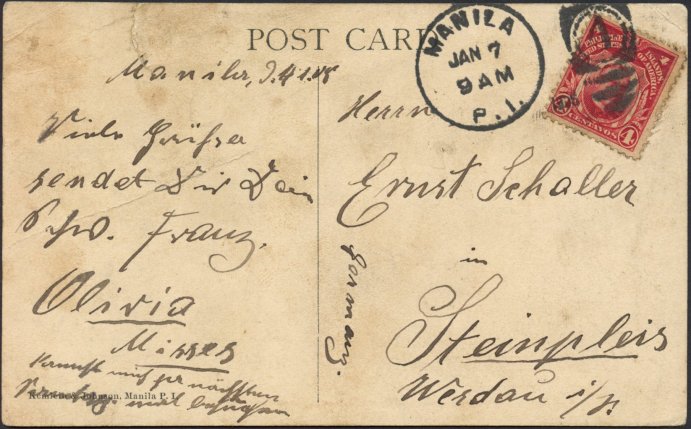 POST CARD
MANILA
JAN 7
9 AM
P. I.
PHILIPPINE ISLANDS
UNITED STATES OF AMERICA
4 CENTAVOS 4
Manila,
Viele Grüsse
sendet Dir Dein
Schw. Franz.
Olivia
Misses
mich
nächsten
mal
Johnson, Manila P. I.
Herrn
Ernst Schaller
in
Steinpleis
Werdau i/S.
Germany.